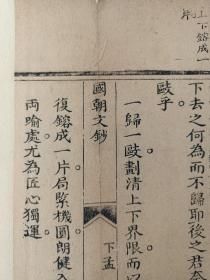 上下鎔成一
片
下去之何為而不歸耶後之君
歐乎
一歸一歐劃清上下界限而
國朝文鈔
下孟
復鎔成一片局緊機圓朗健入
両喻處尤為匠心獨運